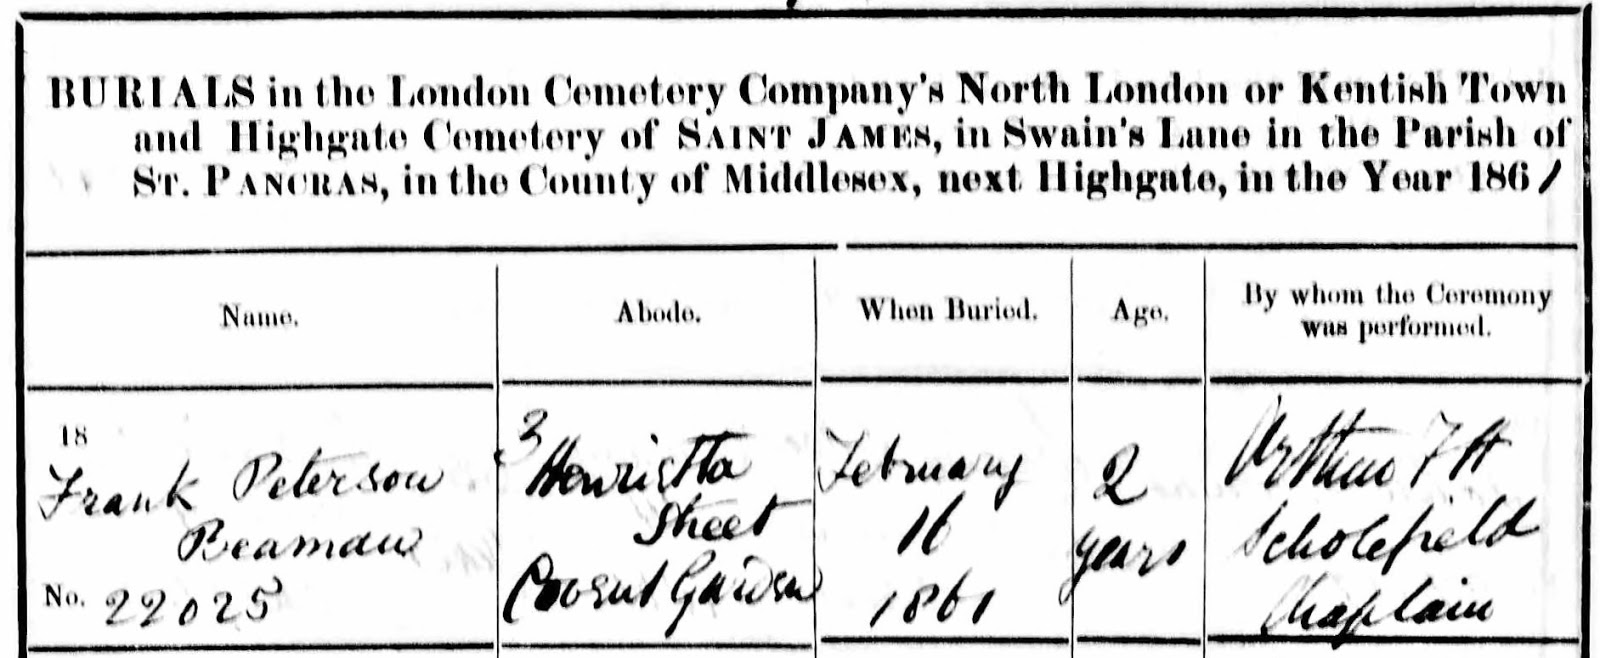 BURIALS in the London Cemetery Company's North London or Kentish Town
and Highgate Cemetery of SAINT JAMES, in Swain's Lane in the Parish of
ST. PANCRAS, in the County of Middlesex, next Highgate, in the Year 1861
Name.
Abode.
When Buried.
Age.
By whom the Ceremony
was performed.
18
Frank Peterson
Beaman
No. 22025
3
Henrietta
Street
Covent Garden
February
16
1861
2
years
Arthur F H
Scholefield
Chaplain